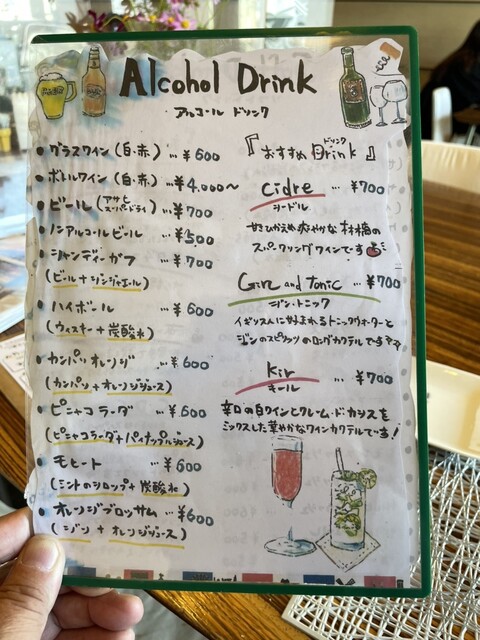 Alcohol Drink
アルコール ドリンク
• グラスワイン (白・赤) … ¥600
• ボトルワイン (白・赤) … ¥4,000〜
• ビール (アサヒ スーパードライ) … ¥700
• ノンアルコールビール … ¥500
• シャンディーガフ … ¥700
(ビール + ジンジャエール)
• ハイボール … ¥600
(ウィスキー + 炭酸水)
• カンパリオレンジ … ¥600
(カンパリ + オレンジジュース)
• ピニャコラーダ … ¥600
(ピニャコラーダ + パイナップルジュース)
• モヒート … ¥600
(ミントのシロップ + 炭酸水)
• オレンジブロッサム … ¥600
(ジン + オレンジジュース)
『おすすめ Drink』
ドリンク
Cidre … ¥700
シードル
甘さひかえめ爽やかな林檎の
スパークリングワインです
Gin and Tonic … ¥700
ジン・トニック
イギリス人に好まれるトニックウォーターと
ジンのスピリッツのロングカクテルです
Kir … ¥700
キール
辛口の白ワインとクレーム・ド・カシスを
ミックスした華やかなワインカクテルです!